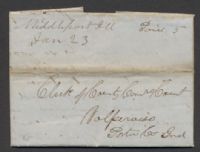 Middleport Ill
Jan 23
Paid 3
Clerk of County Court
Valparaiso
Porter Co Ind